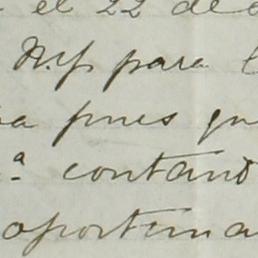 el 22 de
para
pues qu
contand
oportuna